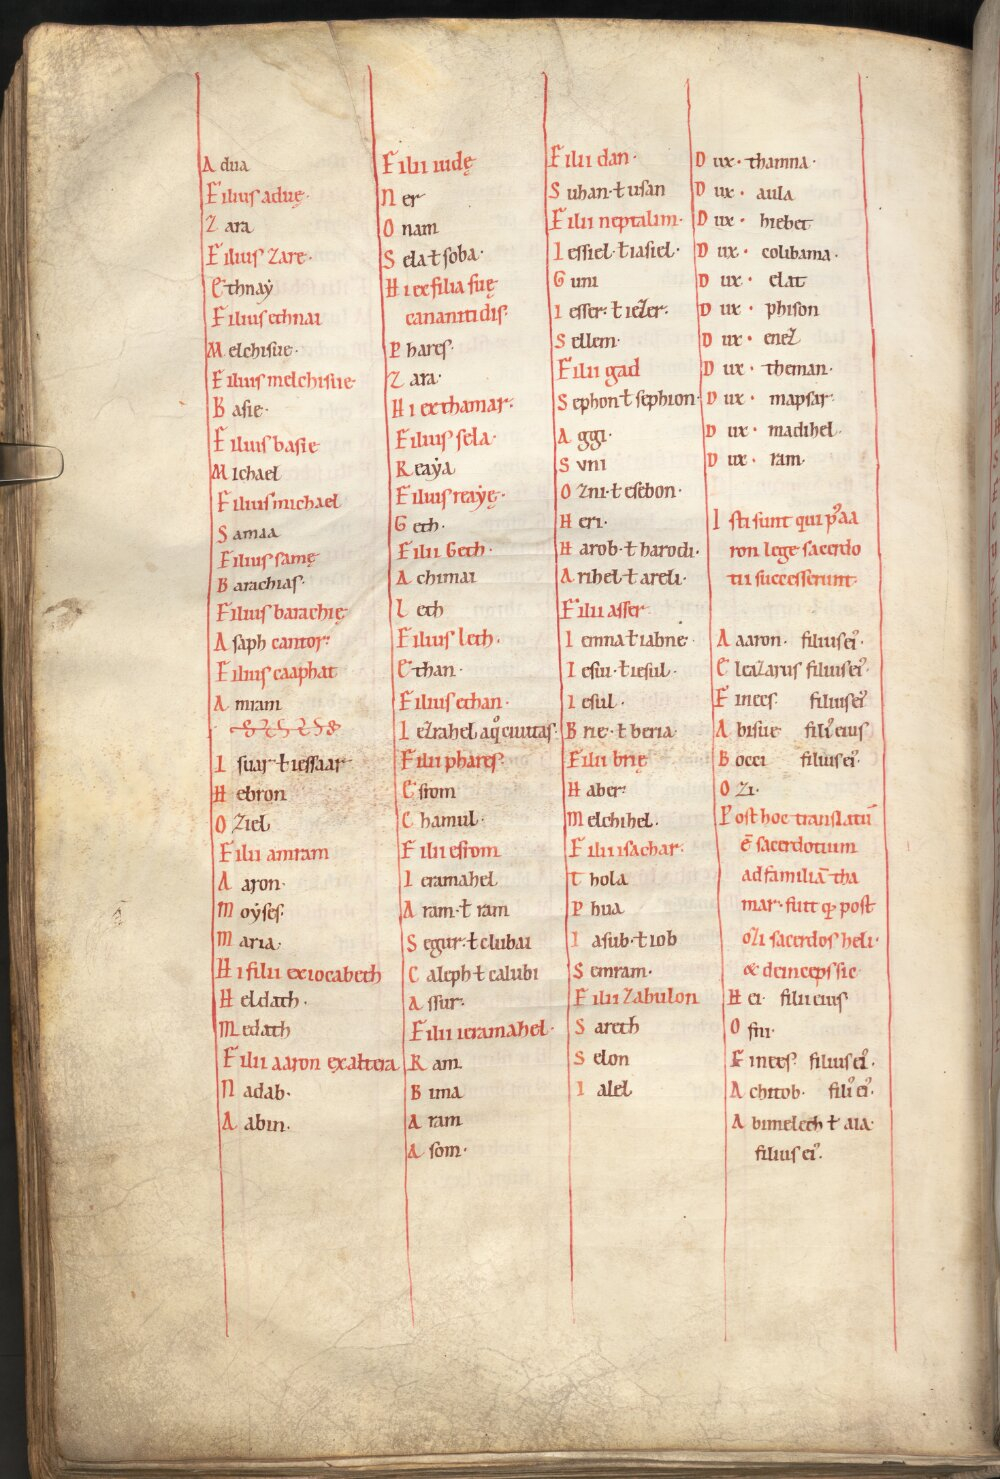 Adua
Filius aduę·
Zara
Filius zare·
Ethnaẏ
Filius ethnai
Melchisue·
Filius melchisue
Basie·
Filius basie
Michael
Filius michael
Samaa
Filius samę
Barachias·
Filius barachię·
Asaph cantor·
Filius caaphat
Amram
Isuar ƚ iessaar
Hebron
Oziel
Filii amram
Aaron·
Moẏses·
Maria·
Hi filii ex iocabeth
Heldath·
Medath
Filii aaron ex altera
Nadab·
Aabin·
Filii iudę
Ner
Onam
Sela ƚ soba·
Hi ex filia suę
cananitidis·
Phares·
Zara·
Hi ex thamar·
Filius sela·
Reaẏa
Filius reaẏę·
Geth·
Filii Geth·
Achimai
Leth
Filius leth·
Ethan·
Filius ethan·
Iezrahel a qͦ ciuitas·
Filii phares·
Esrom
Chamul·
Filii esrom
Ieramahel
Aram· ƚ ram
Segur· ƚ clubai
Caleph ƚ calubi
Assur·
Filii ieramahel·
Ram
Bima
Aram
Asom·
Filii dan·
Suhan· ƚ usan
Filii neptalim·
Iessiel· ƚ iasiel·
Guni
Iesser· ƚ iezer·
Sellem·
Filii gad
Sephon ƚ sephion·
Aggi·
Suni
Ozni· ƚ esebon·
Heri·
Harob· ƚ harodi·
Arihel· ƚ areli·
Filii asser
Iemna ƚ iabne·
Iesu· ƚ iesui·
Iesui·
Brie· ƚ beria·
Filii brię
Haber·
Melchihel·
Filii isachar·
Thola
Phua
Iasub· ƚ iob
Semram·
Filii zabulon
Sareth
Selon
Ialel
Dux· thamna·
Dux· aula
Dux· hiebet
Dux· colibama·
Dux· elat
Dux· phison
Dux· enez
Dux· theman·
Dux· mapsar·
Dux· madihel·
Dux· ram·
Isti sunt qui pꝰ aa
ron lege sacerdo
tii successerunt·
Aaaron· filius eiꝰ·
Eleazarus filius eiꝰ·
Finees· filius eiꝰ
Abisue filiꝰ eius
Bocci filius eiꝰ·
Ozi·
Post hoc translatū
ē sacerdotium
ad familiā tha
mar· fuit qͥ post
ozi sacerdos heli·
& deinceps sic
Hei filii eius
Ofni·
Finees· filius eiꝰ·
Achitob· filiꝰ eiꝰ·
Abimelech ƚ aia·
filius eiꝰ·